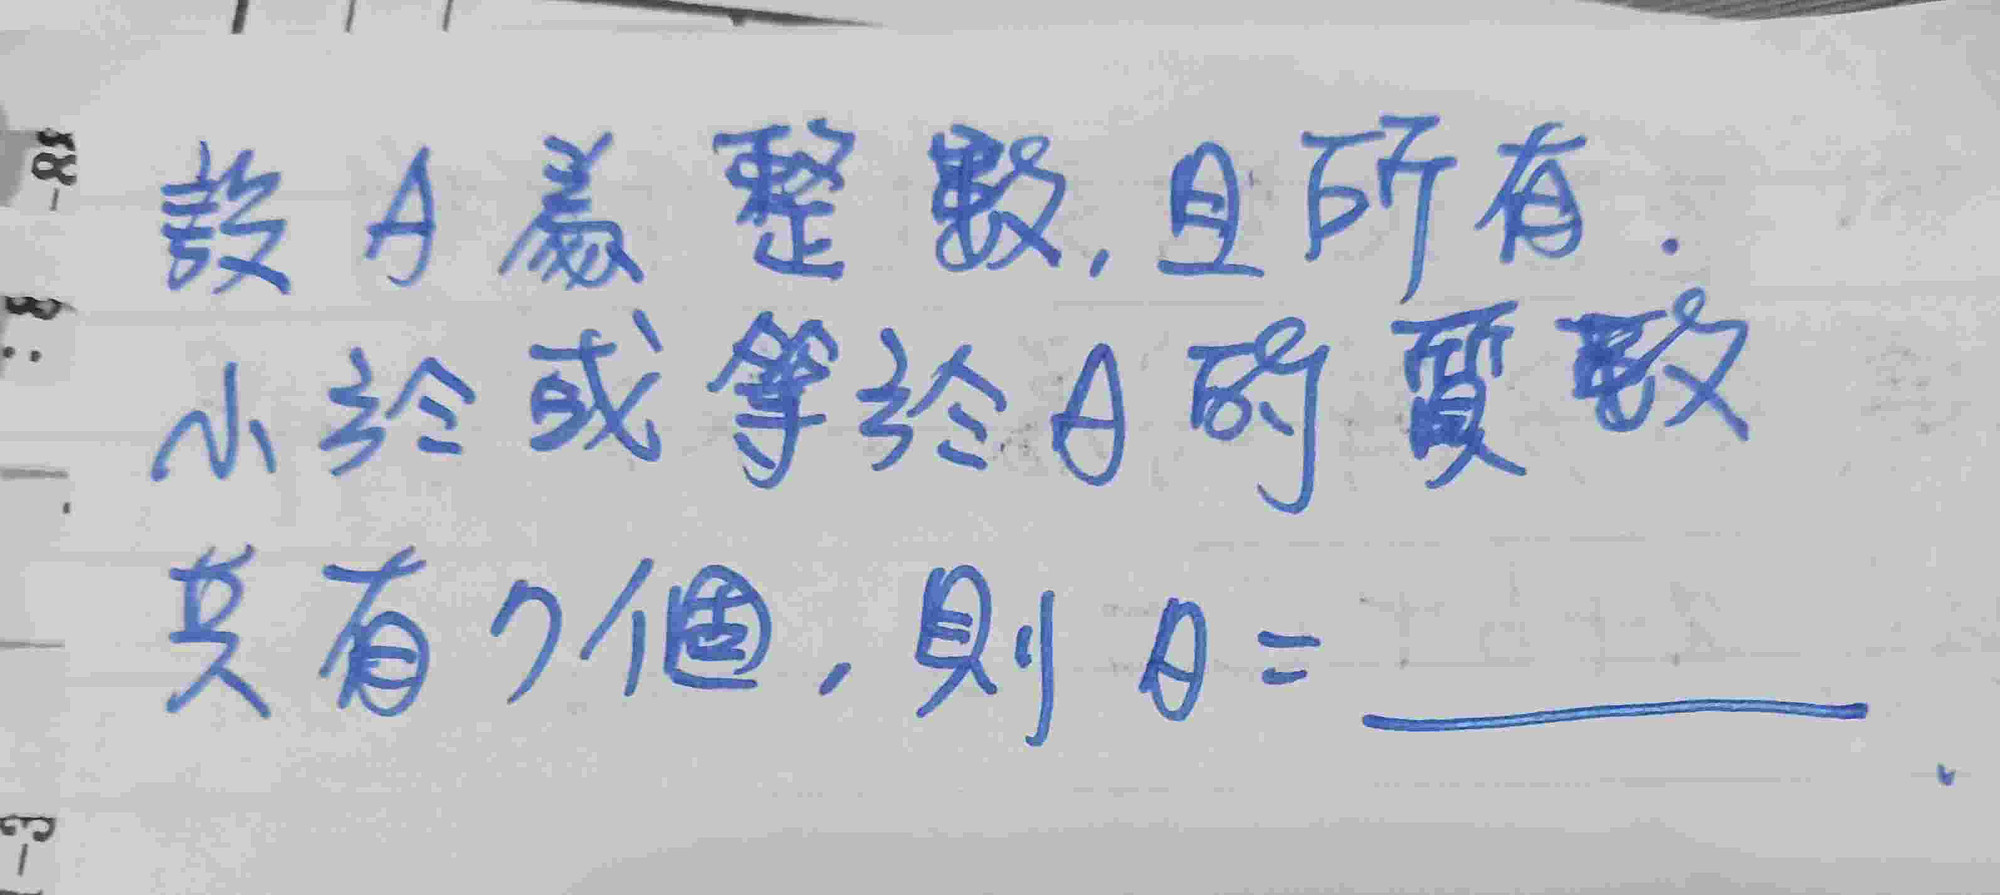 設A為整數,且所有.
小於或等於A的質數
共有7個,則A=______.